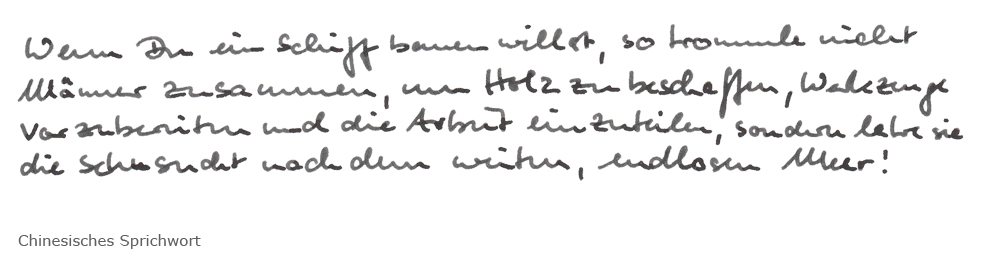 Wenn Du ein Schiff bauen willst, so trommle nicht
Männer zusammen, um Holz zu beschaffen, Werkzeuge
vorzubereiten und die Arbeit einzuteilen, sondern lehre sie
die Sehnsucht nach dem weiten, endlosen Meer!
Chinesisches Sprichwort